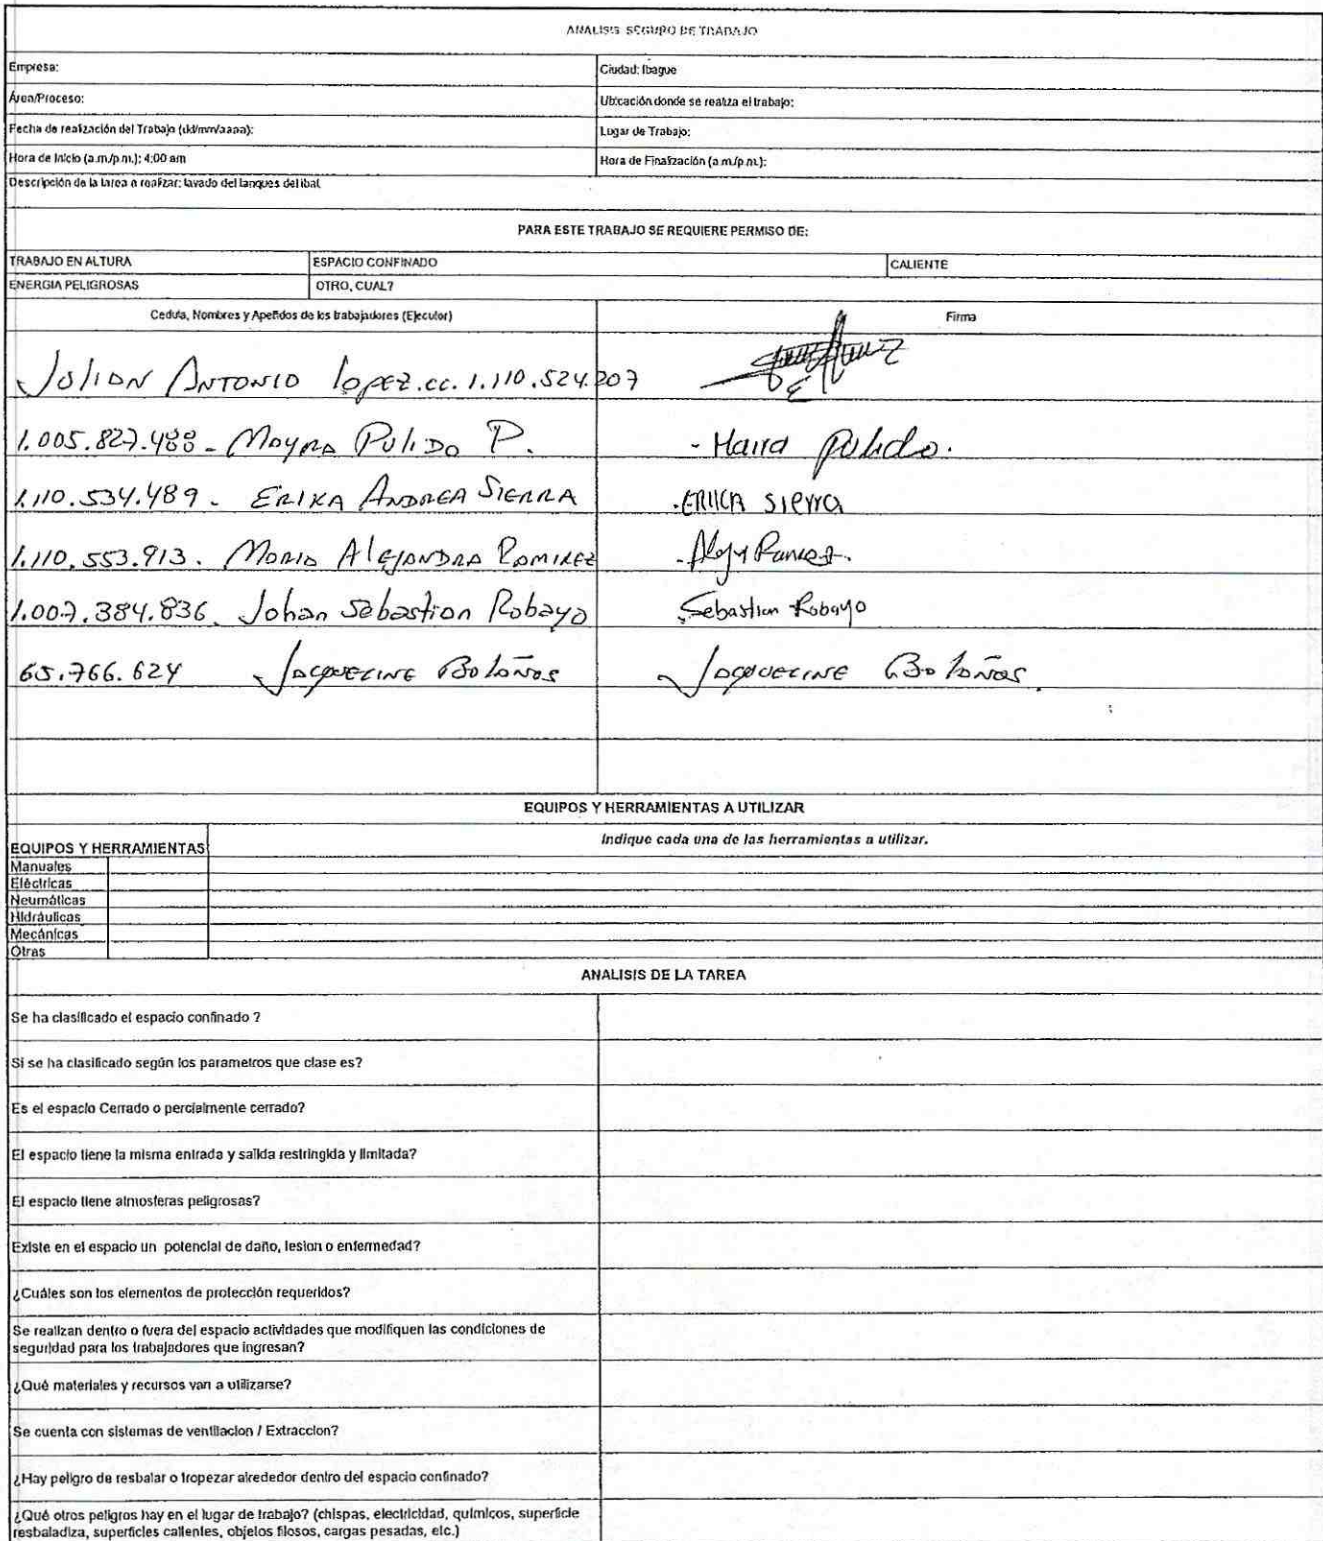 ANALISIS SEGURO DE TRABAJO
Empresa:
Ciudad: Ibague
Área/Proceso:
Ubicación donde se realiza el trabajo:
Fecha de realización del Trabajo (dd/mm/aaaa):
Lugar de Trabajo:
Hora de Inicio (a.m./p.m.): 4:00 am
Hora de Finalización (a.m./p.m.):
Descripción de la tarea a realizar: lavado del tanques del ibal
PARA ESTE TRABAJO SE REQUIERE PERMISO DE:
TRABAJO EN ALTURA
ESPACIO CONFINADO
CALIENTE
ENERGIA PELIGROSAS
OTRO, CUAL?
Cedula, Nombres y Apellidos de los trabajadores (Ejecutor)
Firma
JULIAN ANTONIO lopez.cc. 1.110.524.207
1.005.827.488 - Mayra Pulido P.
- Maira pulido.
1.110.534.489. ERIKA ANDREA SIERRA
.ERICA sierra
1.110.553.913. Maria Alejandra Ramirez
1.007.384.836. Johan Sebastian Robayo
Sebastian Robayo
65.766.624 Jacqueline Bolaños
Jacqueline Bolaños.
EQUIPOS Y HERRAMIENTAS A UTILIZAR
EQUIPOS Y HERRAMIENTAS
Indique cada una de las herramientas a utilizar.
Manuales
Eléctricas
Neumáticas
Hidráulicas
Mecánicas
Otras
ANALISIS DE LA TAREA
Se ha clasificado el espacio confinado ?
Si se ha clasificado según los parametros que clase es?
Es el espacio Cerrado o percialmente cerrado?
El espacio tiene la misma entrada y salida restringida y limitada?
El espacio tiene atmosferas peligrosas?
Existe en el espacio un potencial de daño, lesion o enfermedad?
¿Cuáles son los elementos de protección requeridos?
Se realizan dentro o fuera del espacio actividades que modifiquen las condiciones de
seguridad para los trabajadores que ingresan?
¿Qué materiales y recursos van a utilizarse?
Se cuenta con sistemas de ventilacion / Extraccion?
¿Hay peligro de resbalar o tropezar alrededor dentro del espacio confinado?
¿Qué otros peligros hay en el lugar de trabajo? (chispas, electricidad, químicos, superficie
resbaladiza, superficies calientes, objetos filosos, cargas pesadas, etc.)